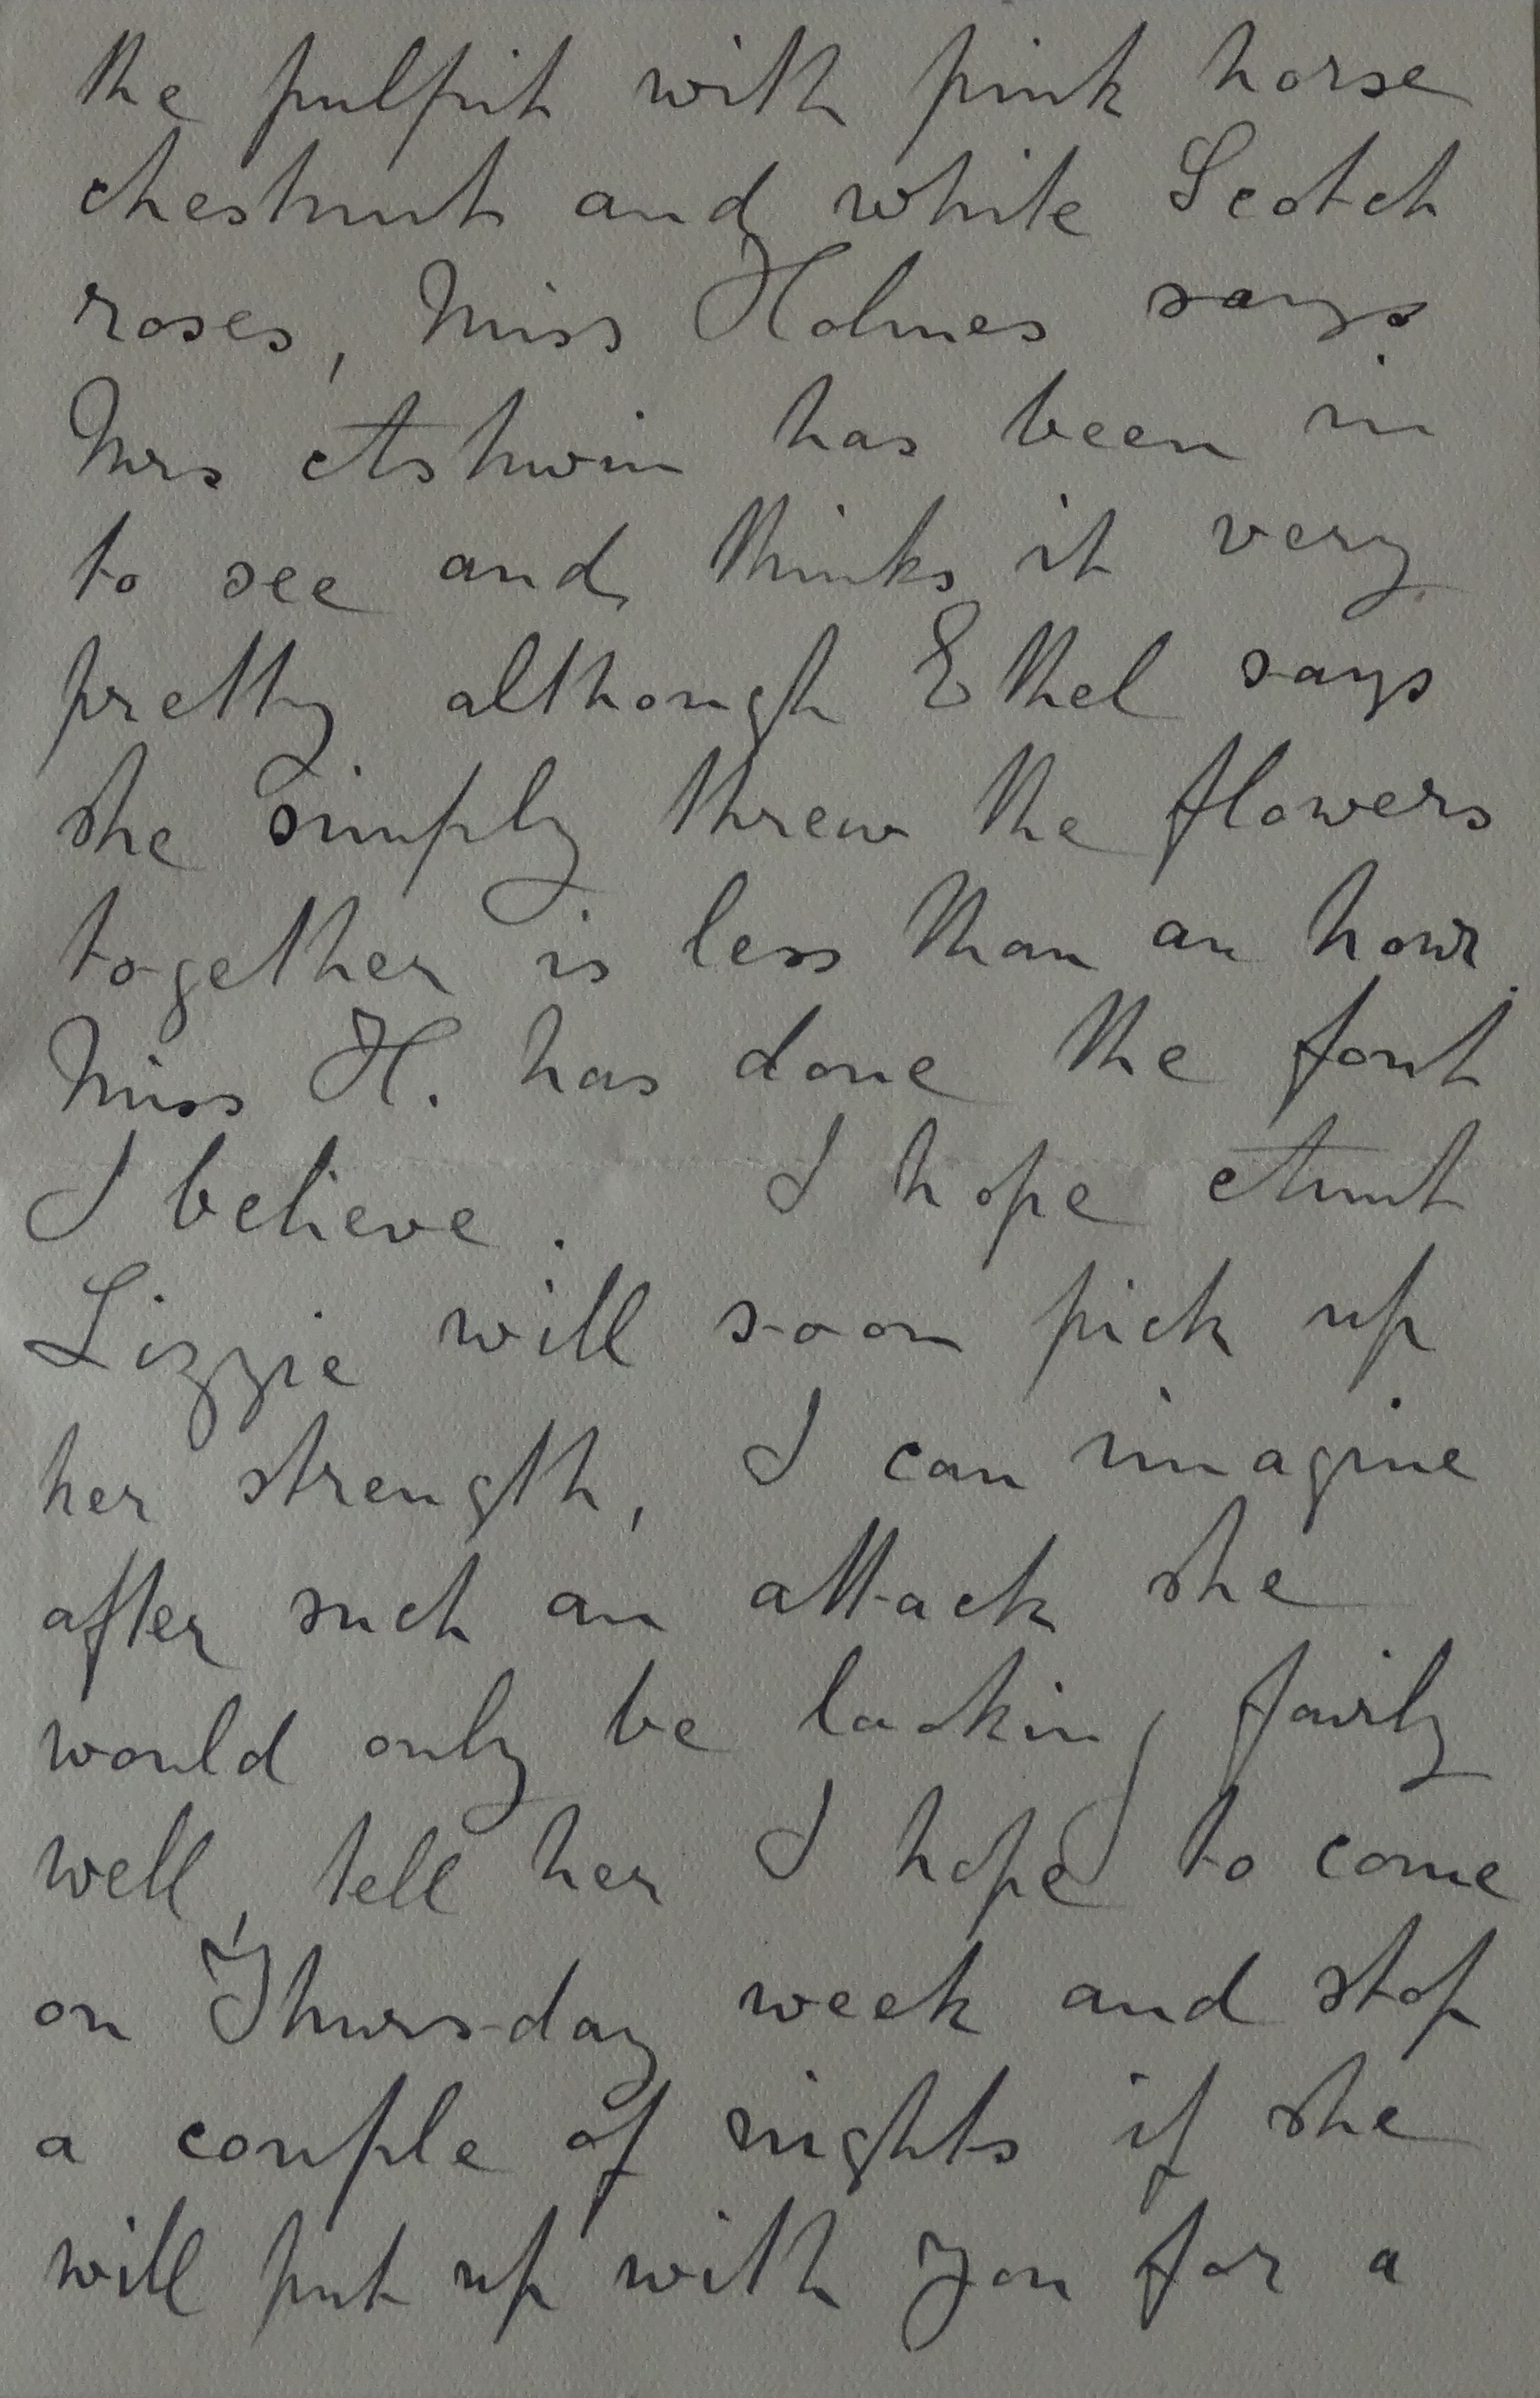 the pulpit with pink horse
chestnut and white Scotch
roses, Miss Holmes says
Mrs Ashwin has been in
to see and thinks it very
pretty although Ethel says
she simply threw the flowers
together is less than an hour.
Miss H. has done the font
I believe. I hope Aunt
Lizzie will soon pick up
her strength, I can imagine
after such an attack she
would only be looking fairly
well, tell her I hope to come
on Thursday week and stop
a couple of nights if she
will put up with you for a